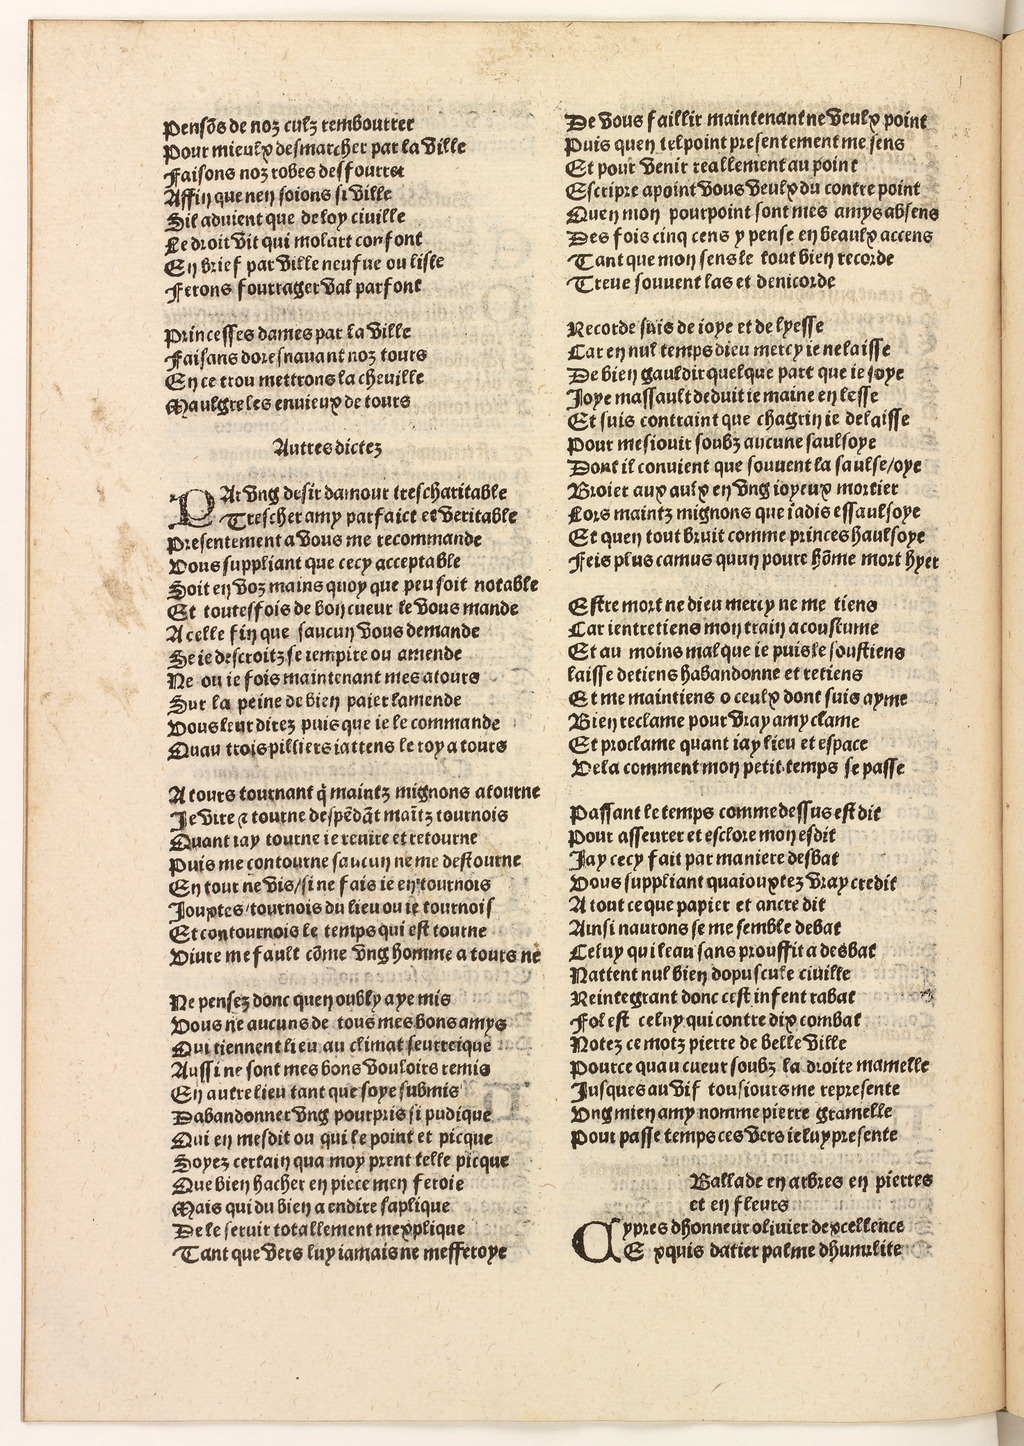 Pensõs de noz culz rembourrer
Pour mieulx desmarcher par la ville
Faisons noz robes desfourrer
Affin que nen soions si ville
Sil aduient que de loy ciuille
Le droit dit qui molart confont
En brief par ville neufue ou lisle
Ferons fourrager val parfont
Princesses dames par la ville
Faisans doresnauant noz tours
En ce trou mettrons la cheuille
Maulgre les enuieux de tours
Autres dictez
PAr vng desir damour trescharitable
Trescher amy parfaict et veritable
Presentement a vous me recommande
Vous suppliant que cecy acceptable
Soit en voz mains quoy que peu soit notable
Et toutesfois de bon cueur le vous mande
A celle fin que saucun vous demande
Se ie descroitz se iempire ou amende
Ne ou ie fois maintenant mes atours
Sur la peine de bien paier lamende
Vous leur direz puis que ie le commande
Quau trois pilliers iattens le roy a tours
A tours tournant q̃ maintz mignons atourne
Je vire ⁊ tourne despẽdãt maĩtz tournois
Quant iay tourne ie reuire et retourne
Puis me contourne saucun ne me destourne
En tour ne vis/si ne fais ie en tournois
Jouxtes/tournois du lieu ou ie tournois
Et contournois le temps qui est tourne
Viure me fault cõme vng homme a tours ne
Ne pensez donc quen oubly aye mis
Vous ne aucuns de tous mes bons amys
Qui tiennent lieu au climat seurreique
Aussi ne sont mes bons vouloirs remis
En autre lieu tant que soye submis
Dabandonner vng pourpris si pudique
Qui en mesdit ou qui le point et picque
Soyez certain qua moy prent telle picque
Que bien hacher en piece men feroie
Mais qui du bien a en dire saplique
De le seruir totallement mexplique
Tant que vers luy iamais ne mefferoye
De vous faillir maintenant ne veulx point
Puis quen tel point presentement me sens
Et pour venir reallement au point
Escripre apoint vous veulx du contre point
Quen mon pourpoint sont mes amys absens
Des fois cinq cens y pense en beaulx accens
Tant que mon sens le tout bien recorde
Treue souuent las et denicorde
Recorde suis de ioye et de lyesse
Car en nul temps dieu mercy ie ne laisse
De bien gauldir quelque part que ie soye
Joye massault deduit ie maine en lesse
Et suis contraint que chagrin ie delaisse
Pour mesiouir soubz aucune saulsoye
Dont il conuient que souuent la saulse/oye
Broier aux aulx en vng ioyeux mortier
Lors maintz mignons que iadis essaulsoye
Et quen tout bruit comme princes haulsoye
Feis plus camus quun poure hõme mort hyer
Estre mort ne dieu mercy ne me tiens
Car ientretiens mon train acoustume
Et au moins mal que ie puis le soustiens
laisse detiens habandonne et retiens
Et me maintiens o ceulx dont suis ayme
Bien reclame pour vray amy clame
Et proclame quant iay lieu et espace
Vela comment mon petit temps se passe
Passant le temps comme dessus est dit
Pour asseurer et esclore mon esdit
Jay cecy fait par maniere desbat
Vous suppliant quaiouxtez vray credit
A tout ce que papier et ancre dit
Ainsi naurons se me semble debat
Celuy qui leau sans prouffit a desbat
Nattent nul bien dopuscule ciuille
Reintegrant donc cest infent rabat
Fol est celuy qui contre dix combat
Notez ce motz pierre de belle ville
Pource quau cueur soubz la droite mamelle
Jusques au vif tousiours me represente
Vng mien amy nomme pierre gramelle
Pour passe temps ces vers ie luy presente
Ballade en arbres en pierres
et en fleurs
CYpres dhonneur oliuier dexcellence
Exquis datier palme dhumilite